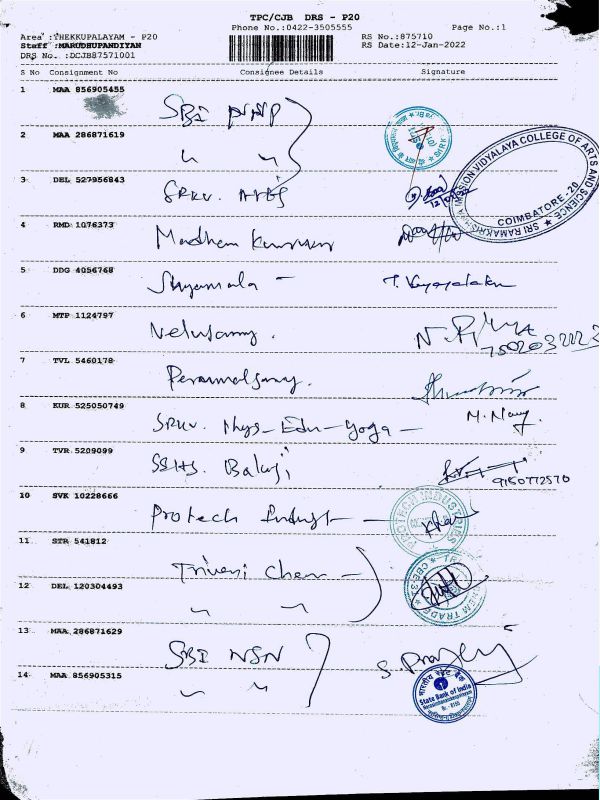 TPC/CJB DRS - P20
Phone No.:0422-3505555
Page No.:1
Area :THEKKUPALAYAM - P20
RS No.:875710
Staff :MARUDHUPANDIYAN
RS Date:12-Jan-2022
DRS No. :DCJB87571001
S No Consignment No Consignee Details Signature
1 MAA 856905455
SBI
2 MAA 286871619
〃 〃
3 DEL 527956843
SRKV.
4 RMD 1076373
Madhan
5 DDG 4056768
Shyamala -
6 MTP 1124797
Velusamy.
N.
7502032223
7 TVL 5460178
Perumalsamy.
8 KUR 525050749
SRKV. Phys-Edu-Yoga -
9 TVR 5209099
Balaji
9150772570
10 SVK 10228666
Protech Indust -
PROTECH INDUSTRIES
11 STR 541812
Triveni Chem -
12 DEL 120304493
〃 〃
13 MAA 286871629
SBI NSN
14 MAA 856905315
〃 〃
SRI RAMAKRISHNA MISSION VIDYALAYA COLLEGE OF ARTS AND SCIENCE
COIMBATORE - 20
भारतीय स्टेट बैंक
State Bank of India